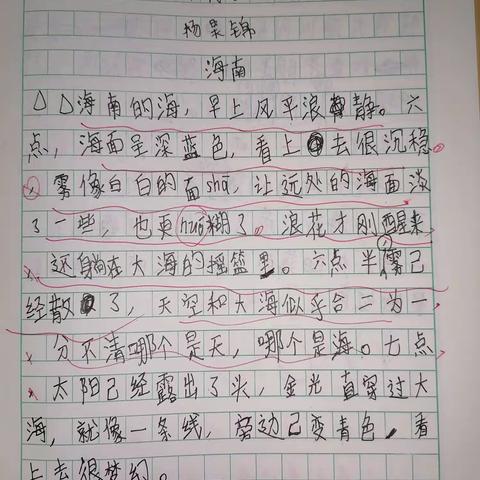 杨昊锦
海南
海南的海，早上风平浪静。六
点，海面呈深蓝色，看上去很沉稳。
雾像白白的面shā，让远处的海面淡
了一些，也更huó糊了。浪花才刚醒来，
还躺在大海的摇篮里。六点半，雾已
经散了，天空和大海似乎合二为一，
分不清哪个是天，哪个是海。七点，
太阳已经露出了头，金光直穿过大
海，就像一条线，旁边已变青色，看
上去很梦幻。